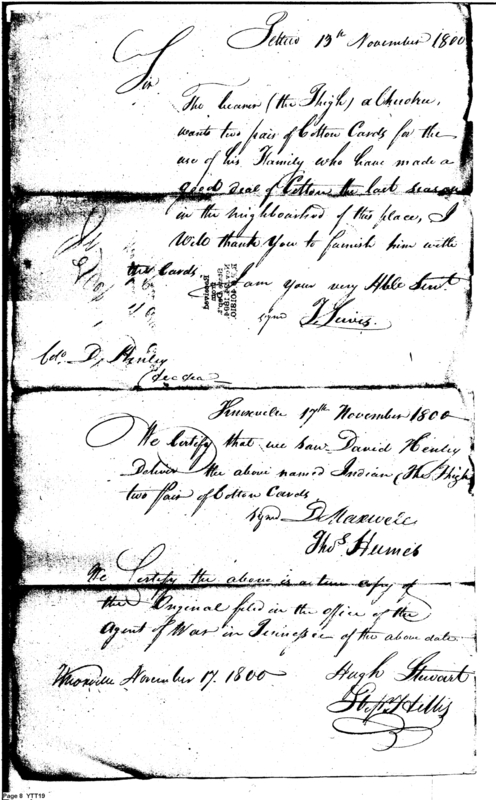 Tellico 13th November 1800
Sir
The bearer (the Thigh) a Cherokee,
wants two pair of Cotton Cards for the
use of his Family who have made a
good deal of Cotton the last season
in the neighbourhood of this place, I
will thank You to furnish him with
the Cards. I am your very Hble Servt.
signd
Lewis.
Colo. D. Henley
Knoxville 17th November 1800
We Certify that we saw David Henley
Deliver the above named Indian (The Thigh
two pair of Cotton Cards
signd
Maxwell
Thos. Humes
We Certify the above is a true copy of
the Original filed in the office of the
Agent of War in Tennessee of the above date
Knoxville November 17. 1800
Hugh Stewart
Hillis
Page 8 YTT19